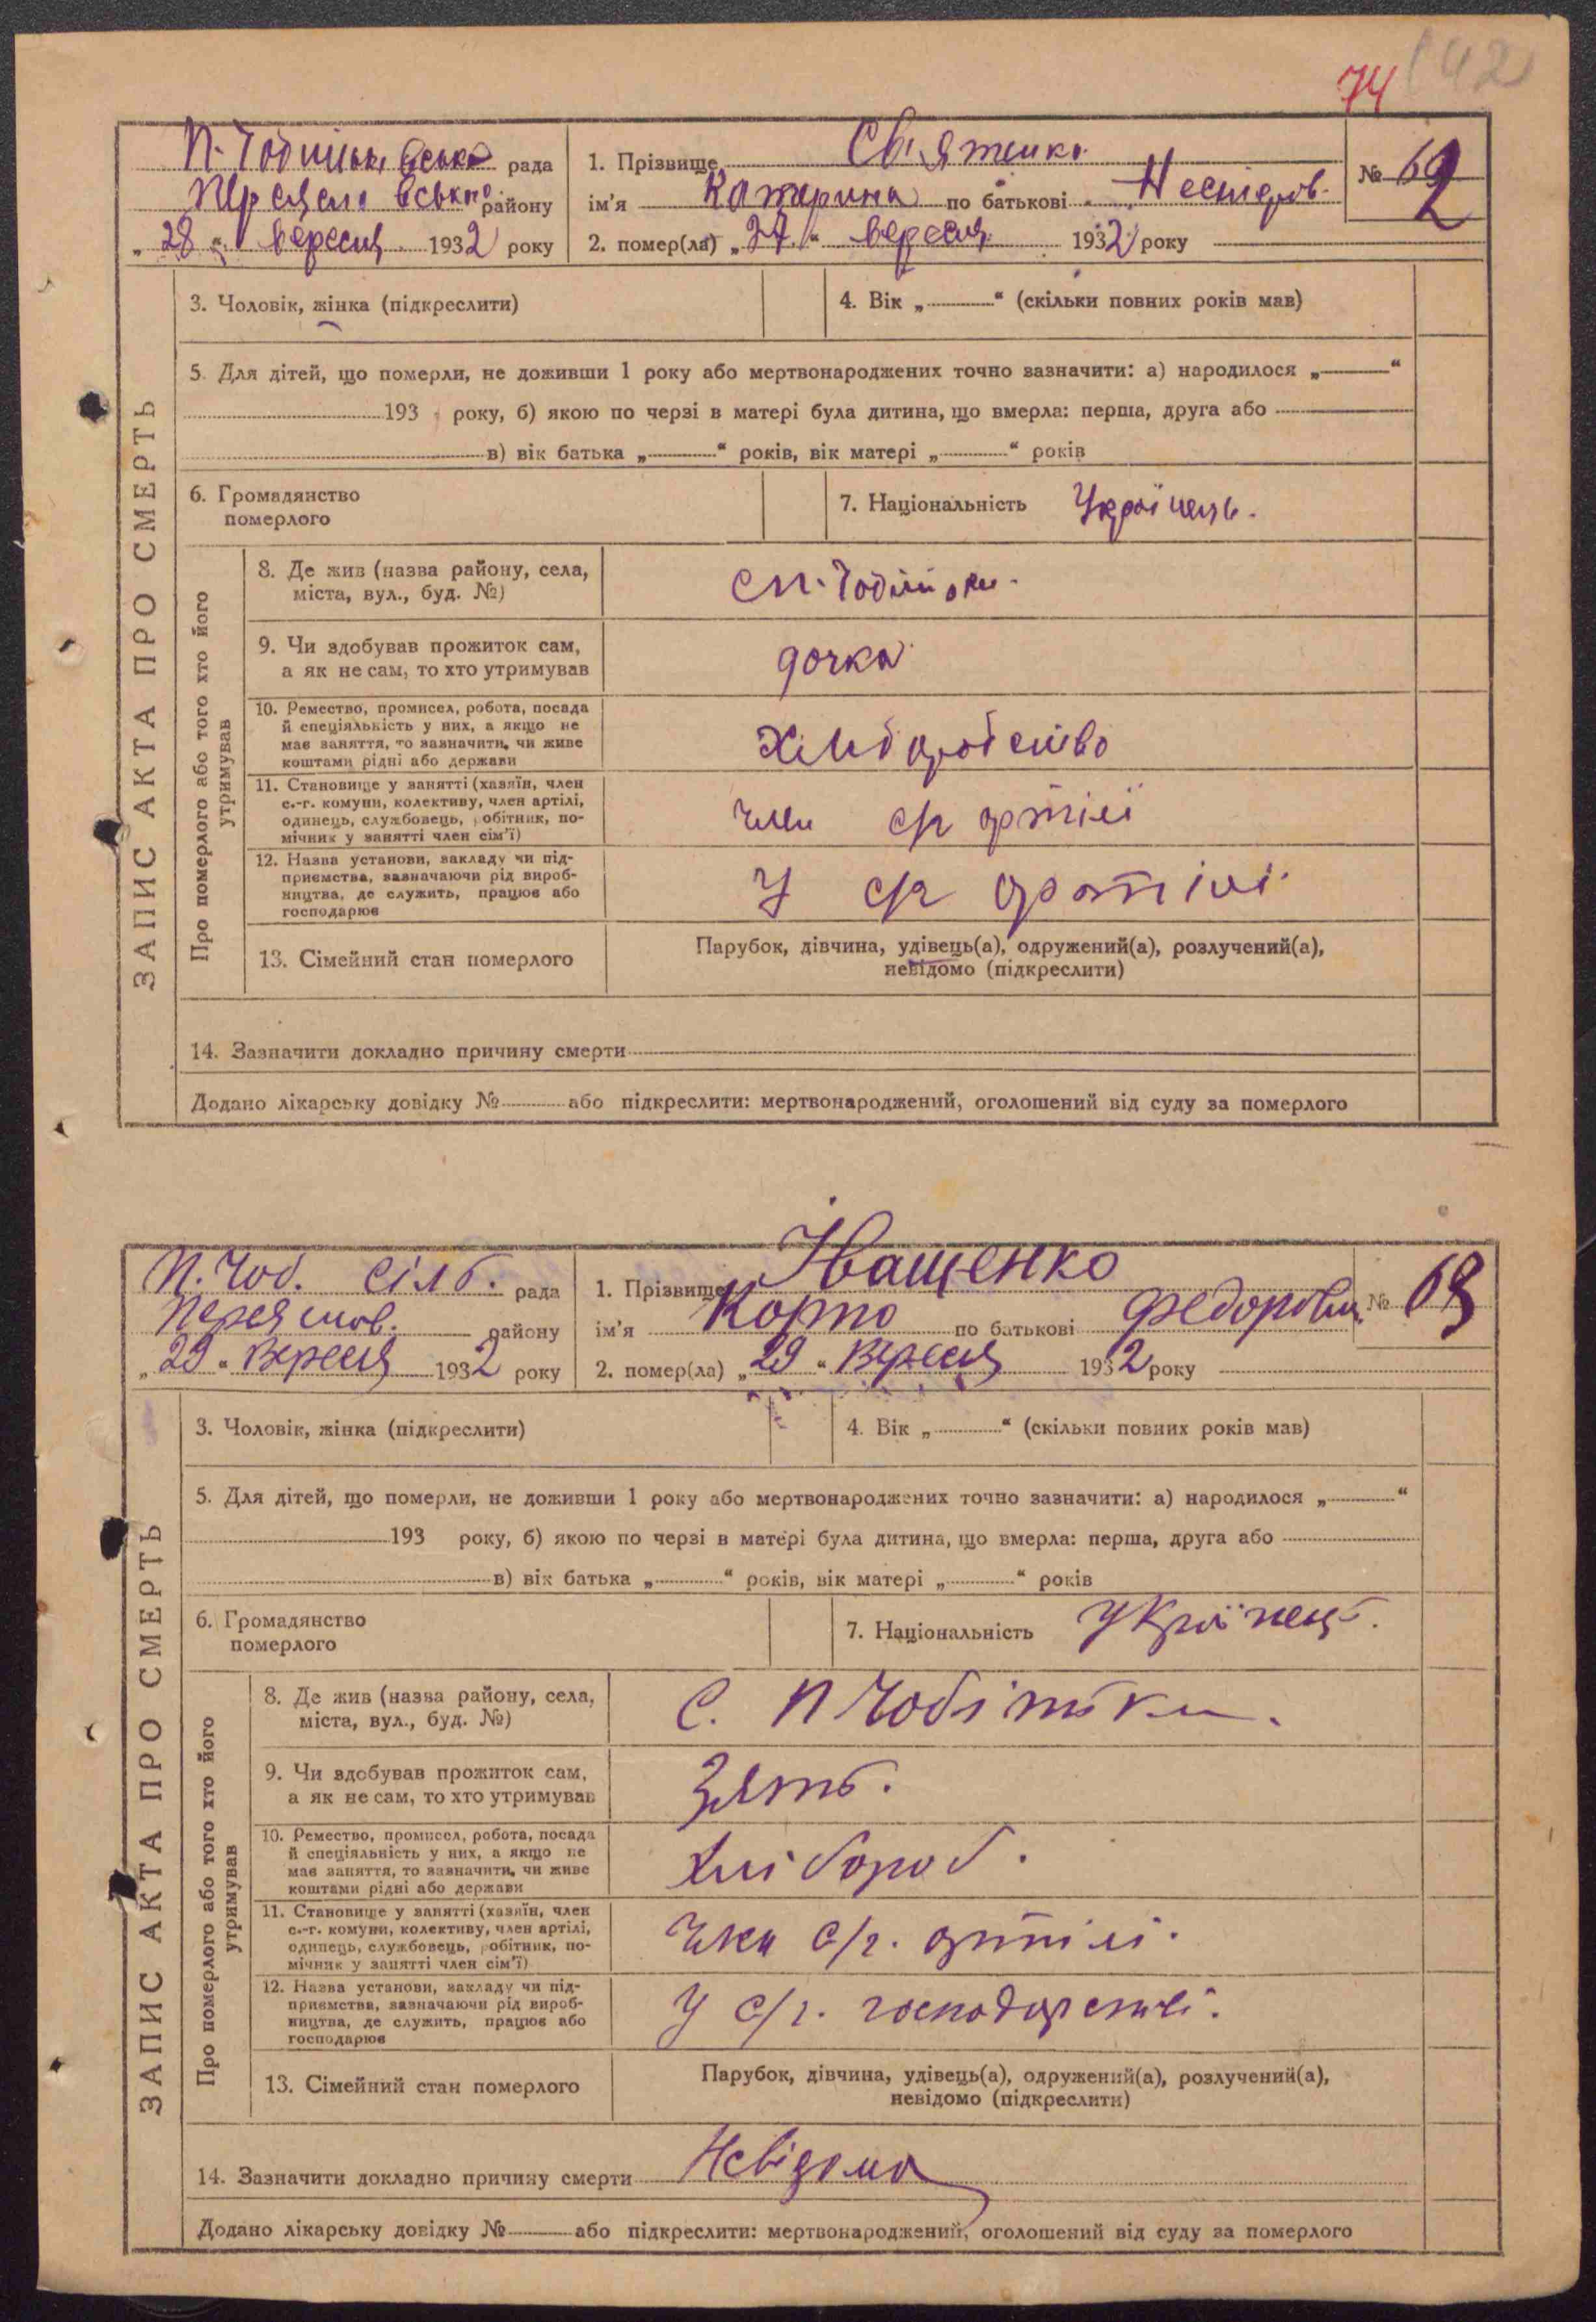 74 142
рада
району
„ 28 “ вересня 1932 року
1. Прізвище Святенко
ім'я Катерина по батькові Нестеров.
2. помер(ла) „ 27 “ вересня 1932 року
№ 62
ЗАПИС АКТА ПРО СМЕРТЬ
3. Чоловік, жінка (підкреслити)
4. Вік „ “ (скільки повних років мав)
5. Для дітей, що померли, не доживши 1 року або мертвонароджених точно зазначити: а) народилося „ “
193 року, б) якою по черзі в матері була дитина, що вмерла: перша, друга або
в) вік батька „ “ років, вік матері „ “ років
6. Громадянство
померлого
7. Національність Українець.
Про померлого або того хто його
утримував
8. Де жив (назва району, села,
міста, вул., буд. №)
9. Чи здобував прожиток сам,
а як не сам, то хто утримував
дочка
10. Ремество, промисел, робота, посада
й спеціяльність у них, а якщо не
має заняття, то зазначити, чи живе
коштами рідні або держави
Хліборобство
11. Становище у занятті (хазяїн, член
с.-г. комуни, колективу, член артілі,
одинець, службовець, робітник, по-
мічник у занятті член сім'ї)
член с/г артілі
12. Назва установи, закладу чи під-
приємства, зазначаючи рід вироб-
ництва, де служить, працює або
господарює
У с/г артілі
13. Сімейний стан померлого
Парубок, дівчина, удівець(а), одружений(а), розлучений(а),
невідомо (підкреслити)
14. Зазначити докладно причину смерти
Додано лікарську довідку № або підкреслити: мертвонароджений, оголошений від суду за померлого
П. Чоб. сілб. рада
Переяслов. району
„ 29 “ Вересня 1932 року
1. Прізвище Іващенко
ім'я Корпо по батькові Федорович
2. помер(ла) „ 29 “ Вересня 1932 року
№ 63
ЗАПИС АКТА ПРО СМЕРТЬ
3. Чоловік, жінка (підкреслити)
4. Вік „ “ (скільки повних років мав)
5. Для дітей, що померли, не доживши 1 року або мертвонароджених точно зазначити: а) народилося „ “
193 року, б) якою по черзі в матері була дитина, що вмерла: перша, друга або
в) вік батька „ “ років, вік матері „ “ років
6. Громадянство
померлого
7. Національність Українець.
Про померлого або того хто його
утримував
8. Де жив (назва району, села,
міста, вул., буд. №)
С. П Чобітьки.
9. Чи здобував прожиток сам,
а як не сам, то хто утримував
Зять.
10. Ремество, промисел, робота, посада
й спеціяльність у них, а якщо не
має заняття, то зазначити, чи живе
коштами рідні або держави
Хлібороб.
11. Становище у занятті (хазяїн, член
с.-г. комуни, колективу, член артілі,
одинець, службовець, робітник, по-
мічник у занятті член сім'ї)
Член с/г. артілі.
12. Назва установи, закладу чи під-
приємства, зазначаючи рід вироб-
ництва, де служить, працює або
господарює
У с/г. господарстві.
13. Сімейний стан померлого
Парубок, дівчина, удівець(а), одружений(а), розлучений(а),
невідомо (підкреслити)
14. Зазначити докладно причину смерти Невідома
Додано лікарську довідку № або підкреслити: мертвонароджений, оголошений від суду за померлого